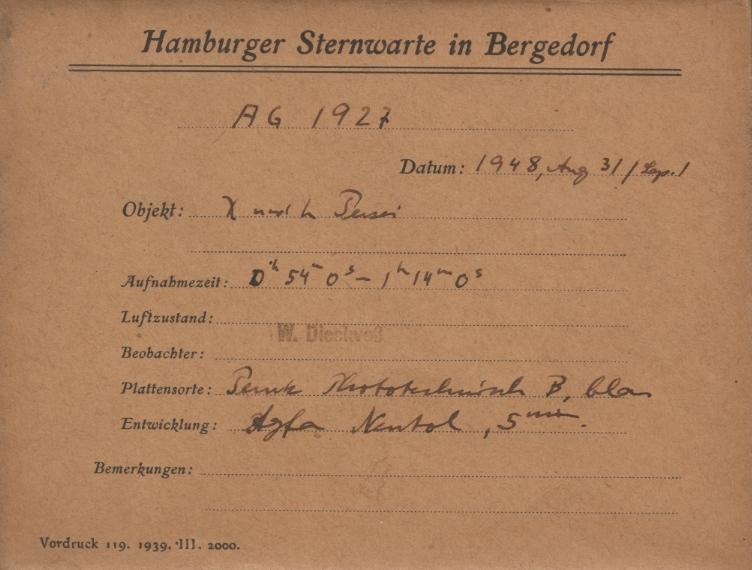 Hamburger Sternwarte in Bergedorf
AG 1927
Datum: 1948, Aug 31 / Sep. 1
Objekt: χ und h Persei
Aufnahmezeit: 0ʰ 54ᵐ 0ˢ – 1ʰ 14ᵐ 0ˢ
Luftzustand:
W. Dieckvoß
Beobachter:
Plattensorte: Perutz Phototechnisch B, blau
Entwicklung: Agfa Neutol, 5 min.
Bemerkungen:
Vordruck 119. 1939. III. 2000.